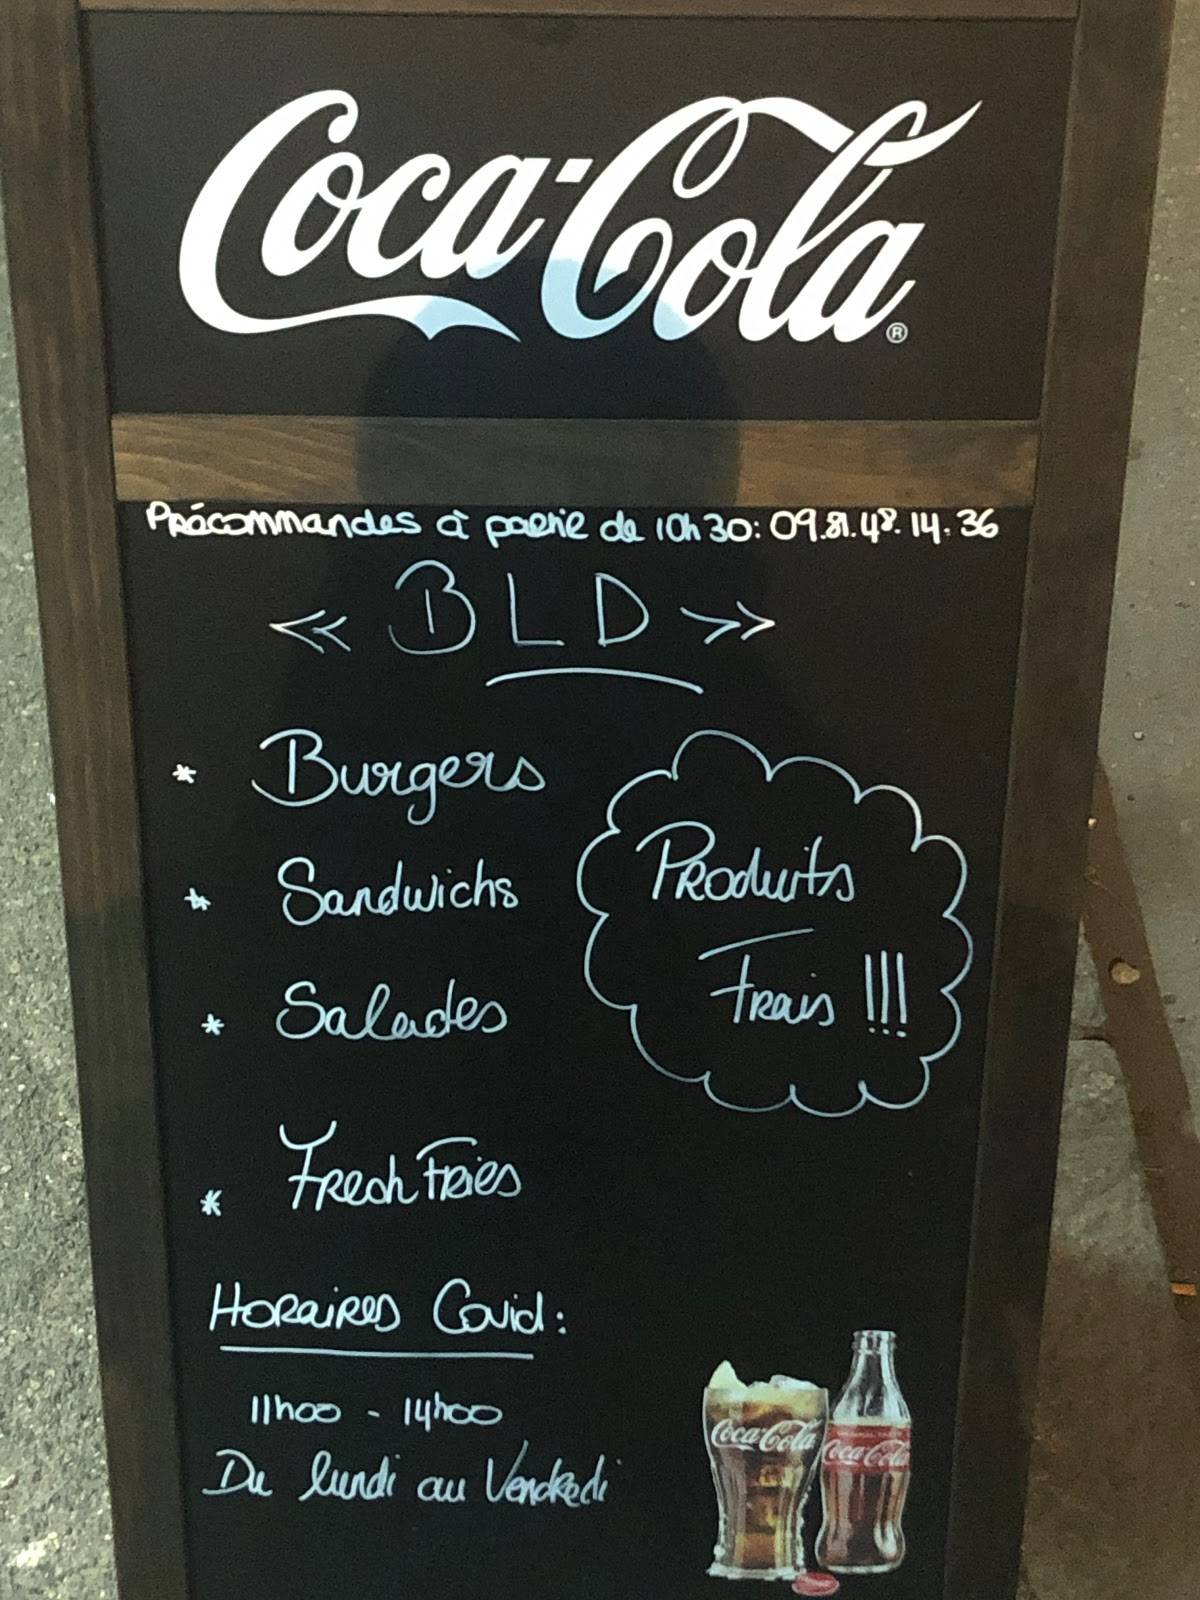 Coca-Cola®
Précommandes à partir de 10h30: 09.81.48.14.36
<< BLD >>
* Burgers
* Sandwichs
* Salades
* Fresh Fries
Produits
Frais !!!
Horaires Covid:
11h00 - 14h00
Du lundi au Vendredi
Coca-Cola
Coca-Cola